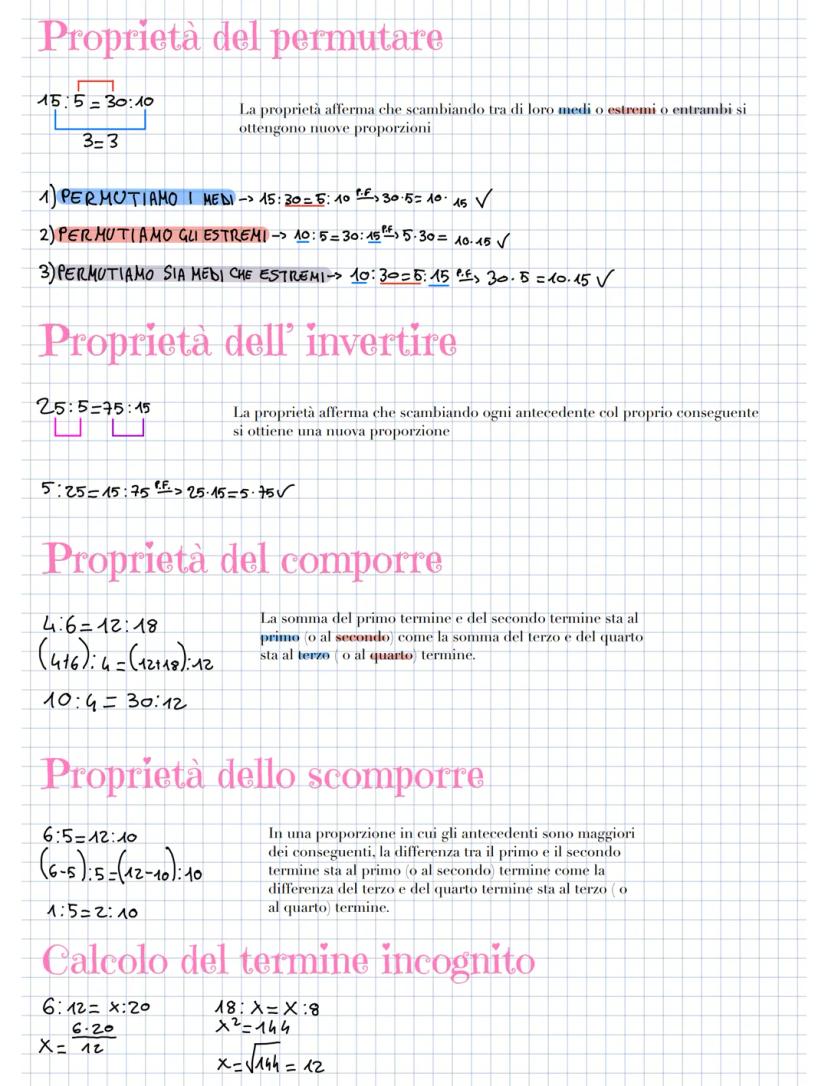 Proprietà del permutare
15:5=30:10
3=3
La proprietà afferma che scambiando tra di loro medi o estremi o entrambi si
ottengono nuove proporzioni
1) PERMUTIAMO I MEDI -> 15:30=5:10 P.F.> 30·5=10·15 ✓
2) PERMUTIAMO GLI ESTREMI -> 10:5=30:15 P.F.> 5·30=10·15 ✓
3) PERMUTIAMO SIA MEDI CHE ESTREMI -> 10:30=5:15 P.F.> 30·5=10·15 ✓
Proprietà dell' invertire
25:5=75:15
La proprietà afferma che scambiando ogni antecedente col proprio conseguente
si ottiene una nuova proporzione
5:25=15:75 P.F.> 25·15=5·75 ✓
Proprietà del comporre
4:6=12:18
(4+6):4=(12+18):12
10:4=30:12
La somma del primo termine e del secondo termine sta al
primo (o al secondo) come la somma del terzo e del quarto
sta al terzo ( o al quarto) termine.
Proprietà dello scomporre
6:5=12:10
(6-5):5=(12-10):10
1:5=2:10
In una proporzione in cui gli antecedenti sono maggiori
dei conseguenti, la differenza tra il primo e il secondo
termine sta al primo (o al secondo) termine come la
differenza del terzo e del quarto termine sta al terzo ( o
al quarto) termine.
Calcolo del termine incognito
6:12=x:20
x=6·20/12
18:x=x:8
x²=144
x=√144=12